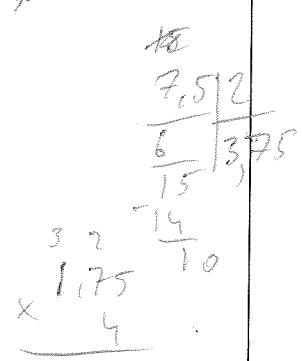 7,5 2
6 3,75
15
- 14
10
3 2
1,75
x 4